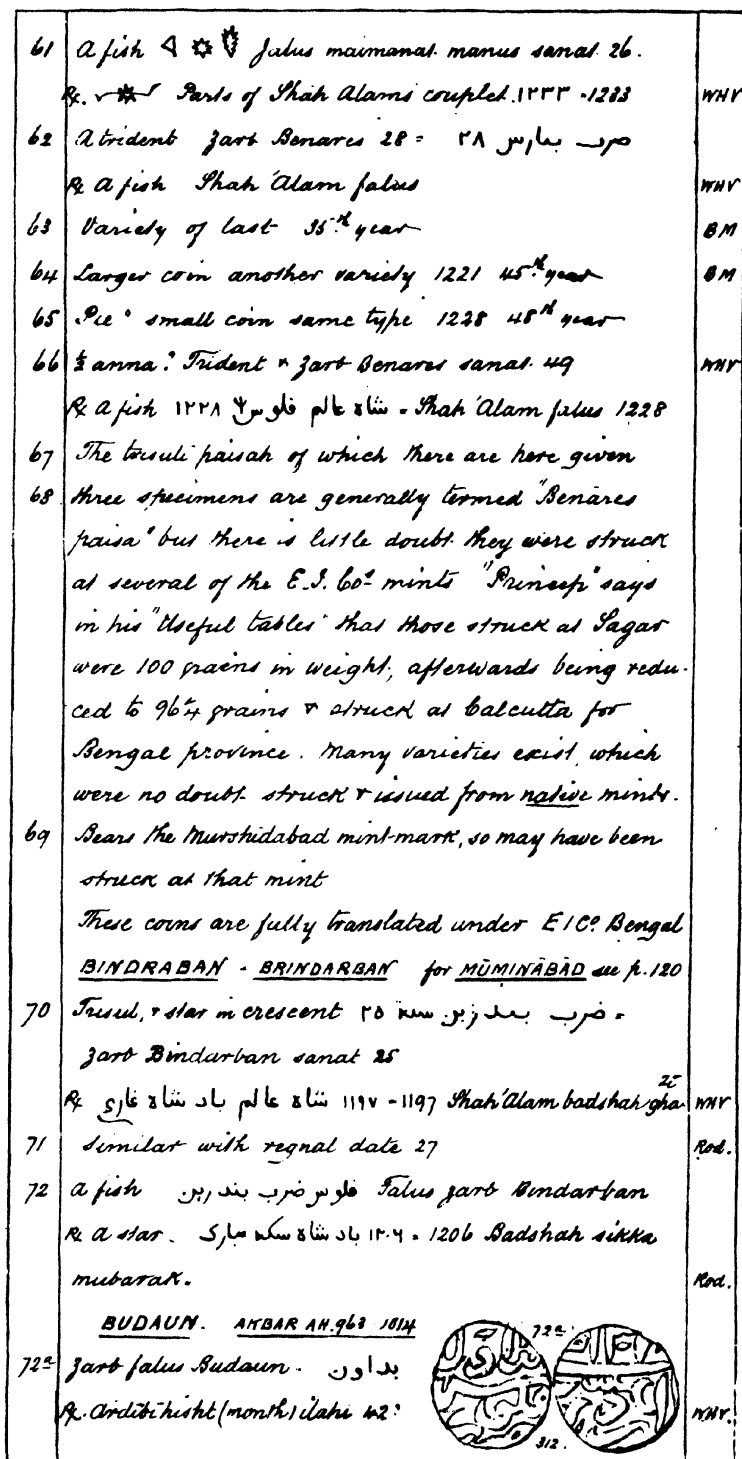 61 A fish Jalus maimanat manus sanat 26.
Rx. Parts of Shah Alams couplet. ۱۲۳۳ - 1233 WHV
62 A trident Zarb Benares 28 = ضرب بنارس ۲۸
Rx A fish Shah 'Alam falus WHV
63 Variety of last 35th year BM
64 Larger coin another variety 1221 45th year BM
65 Pie small coin same type 1228 48th year
66 ½ anna: Trident & Zarb Benares sanat 49 WHV
Rx A fish شاه عالم فلوس ۱۲۲۸ = Shah 'Alam falus 1228
67 The trisuli paisah of which there are here given
68 three specimens are generally termed "Benares
paisa" but there is little doubt they were struck
at several of the E.I. Cos mints "Prinsep" says
in his "Useful tables" that those struck at Sagar
were 100 grains in weight, afterwards being redu-
ced to 96¼ grains & struck at Calcutta for
Bengal province. Many varieties exist which
were no doubt struck & issued from native mints.
69 Bears the Murshidabad mint-mark, so may have been
struck at that mint
These coins are fully translated under E I Co. Bengal
BINDRABAN - BRINDARBAN for MŪMINĀBĀD see p. 120
70 Trisul, & star in crescent ضرب بندربن سنه ۲۵ =
Zarb Bindarban sanat 25
Rx شاه عالم باد شاه غازي ۱۱۹۷ - 1197 Shah 'Alam badshah ghazi WHV
71 Similar with regnal date 27 Rod.
72 A fish فلوس ضرب بندربن Falus zarb Bindarban
Rx A star. باد شاه سكه مبارك ۱۲۰۶ = 1206 Badshah sikka
mubarak. Rod.
BUDAUN. AKBAR AH. 963 1014
72a
72a Zarb falus Budaun. بداون
Rx. Ardibihisht (month) ilahi 42: WHV.
312.